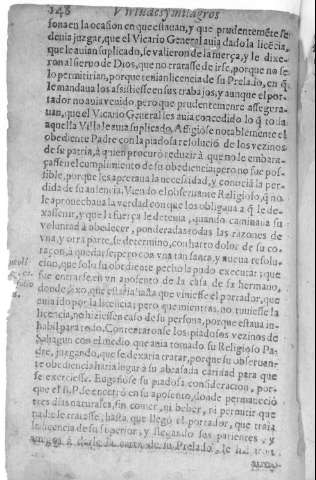 148 Virtudes y milagros
sona en la ocasion en que estauan, y que prudentemẽte se
deuia juzgar, que el Vicario General auia dado la licẽcia,
que le auian suplicado, se valieron de la fuerça, y le dixe-
ron al sieruo de Dios, que no tratasse de irse, porque no se
lo permitirian, porque tenian licencia de su Prelado, en q̃
le mandaua los assistiesse en sus trabajos, y aunque el por-
tador no auia venido, pero que prudentemente assegura-
uan, que el Vicario General les auia concedido lo q̃ toda
aquella Villa le auia suplicado. Afligiòse notablemente el
obediente Padre con la piadosa resoluciõ de los vezinos
de su patria, à quien procurò reduzir à que no le embara-
çassen el cumplimiento de su obediencia; pero no fue pos-
sible, porque les apretaua la necessidad, y conocia la per-
dida de su ausencia. Viendo el obseruante Religioso, q̃ no
le aprouechaua la verdad con que los obligaua a q̃ le de-
xassen ir, y que la fuerça le detenia, quando caminaua su
voluntad à obedecer, ponderadas todas las razones de
vna, y otra parte, se determino, con harto dolor de su co-
raçon, à quedarse; pero con vna tan santa, y nueua resolu-
cion, que solo su obediente pecho la pudo executar; que
fue entrarse en vn aposento de la casa de su hermano,
donde dixo, que estaria hasta que viniesse el portador, que
auia ido por la licencia; pero que mientras, no tuuiesse la
licencia, no hiziessen caso de su persona, porque estaua in-
habil para todo. Contentaronse los piadosos vezinos de
Sahagun con el medio que auia tomado su Religioso Pa-
dre, juzgando, que se dexaria tratar, porque su obseruan-
te obediencia haria lugar à su abrasada caridad para que
se exerciesse. Engañòse su piadosa consideracion, por-
que el S. P. se encerrò en su aposento, donde permaneciò
tres dias naturales, sin comer, ni beber, ni permitir que
nadie le tratasse, hasta que llegò el portador, que traia
la licencia de su superior, y llegando sus parientes, y
amigos à darle la carta de su Prelado, le